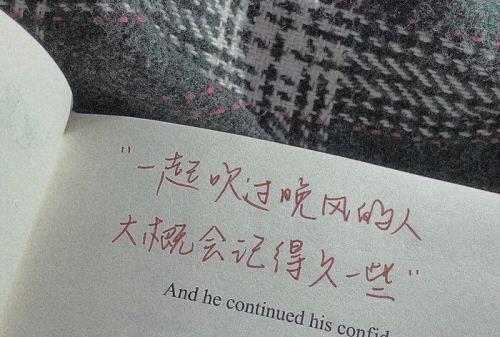 "一起吹过晚风的人
大概会记得久一些"
And he continued his confid